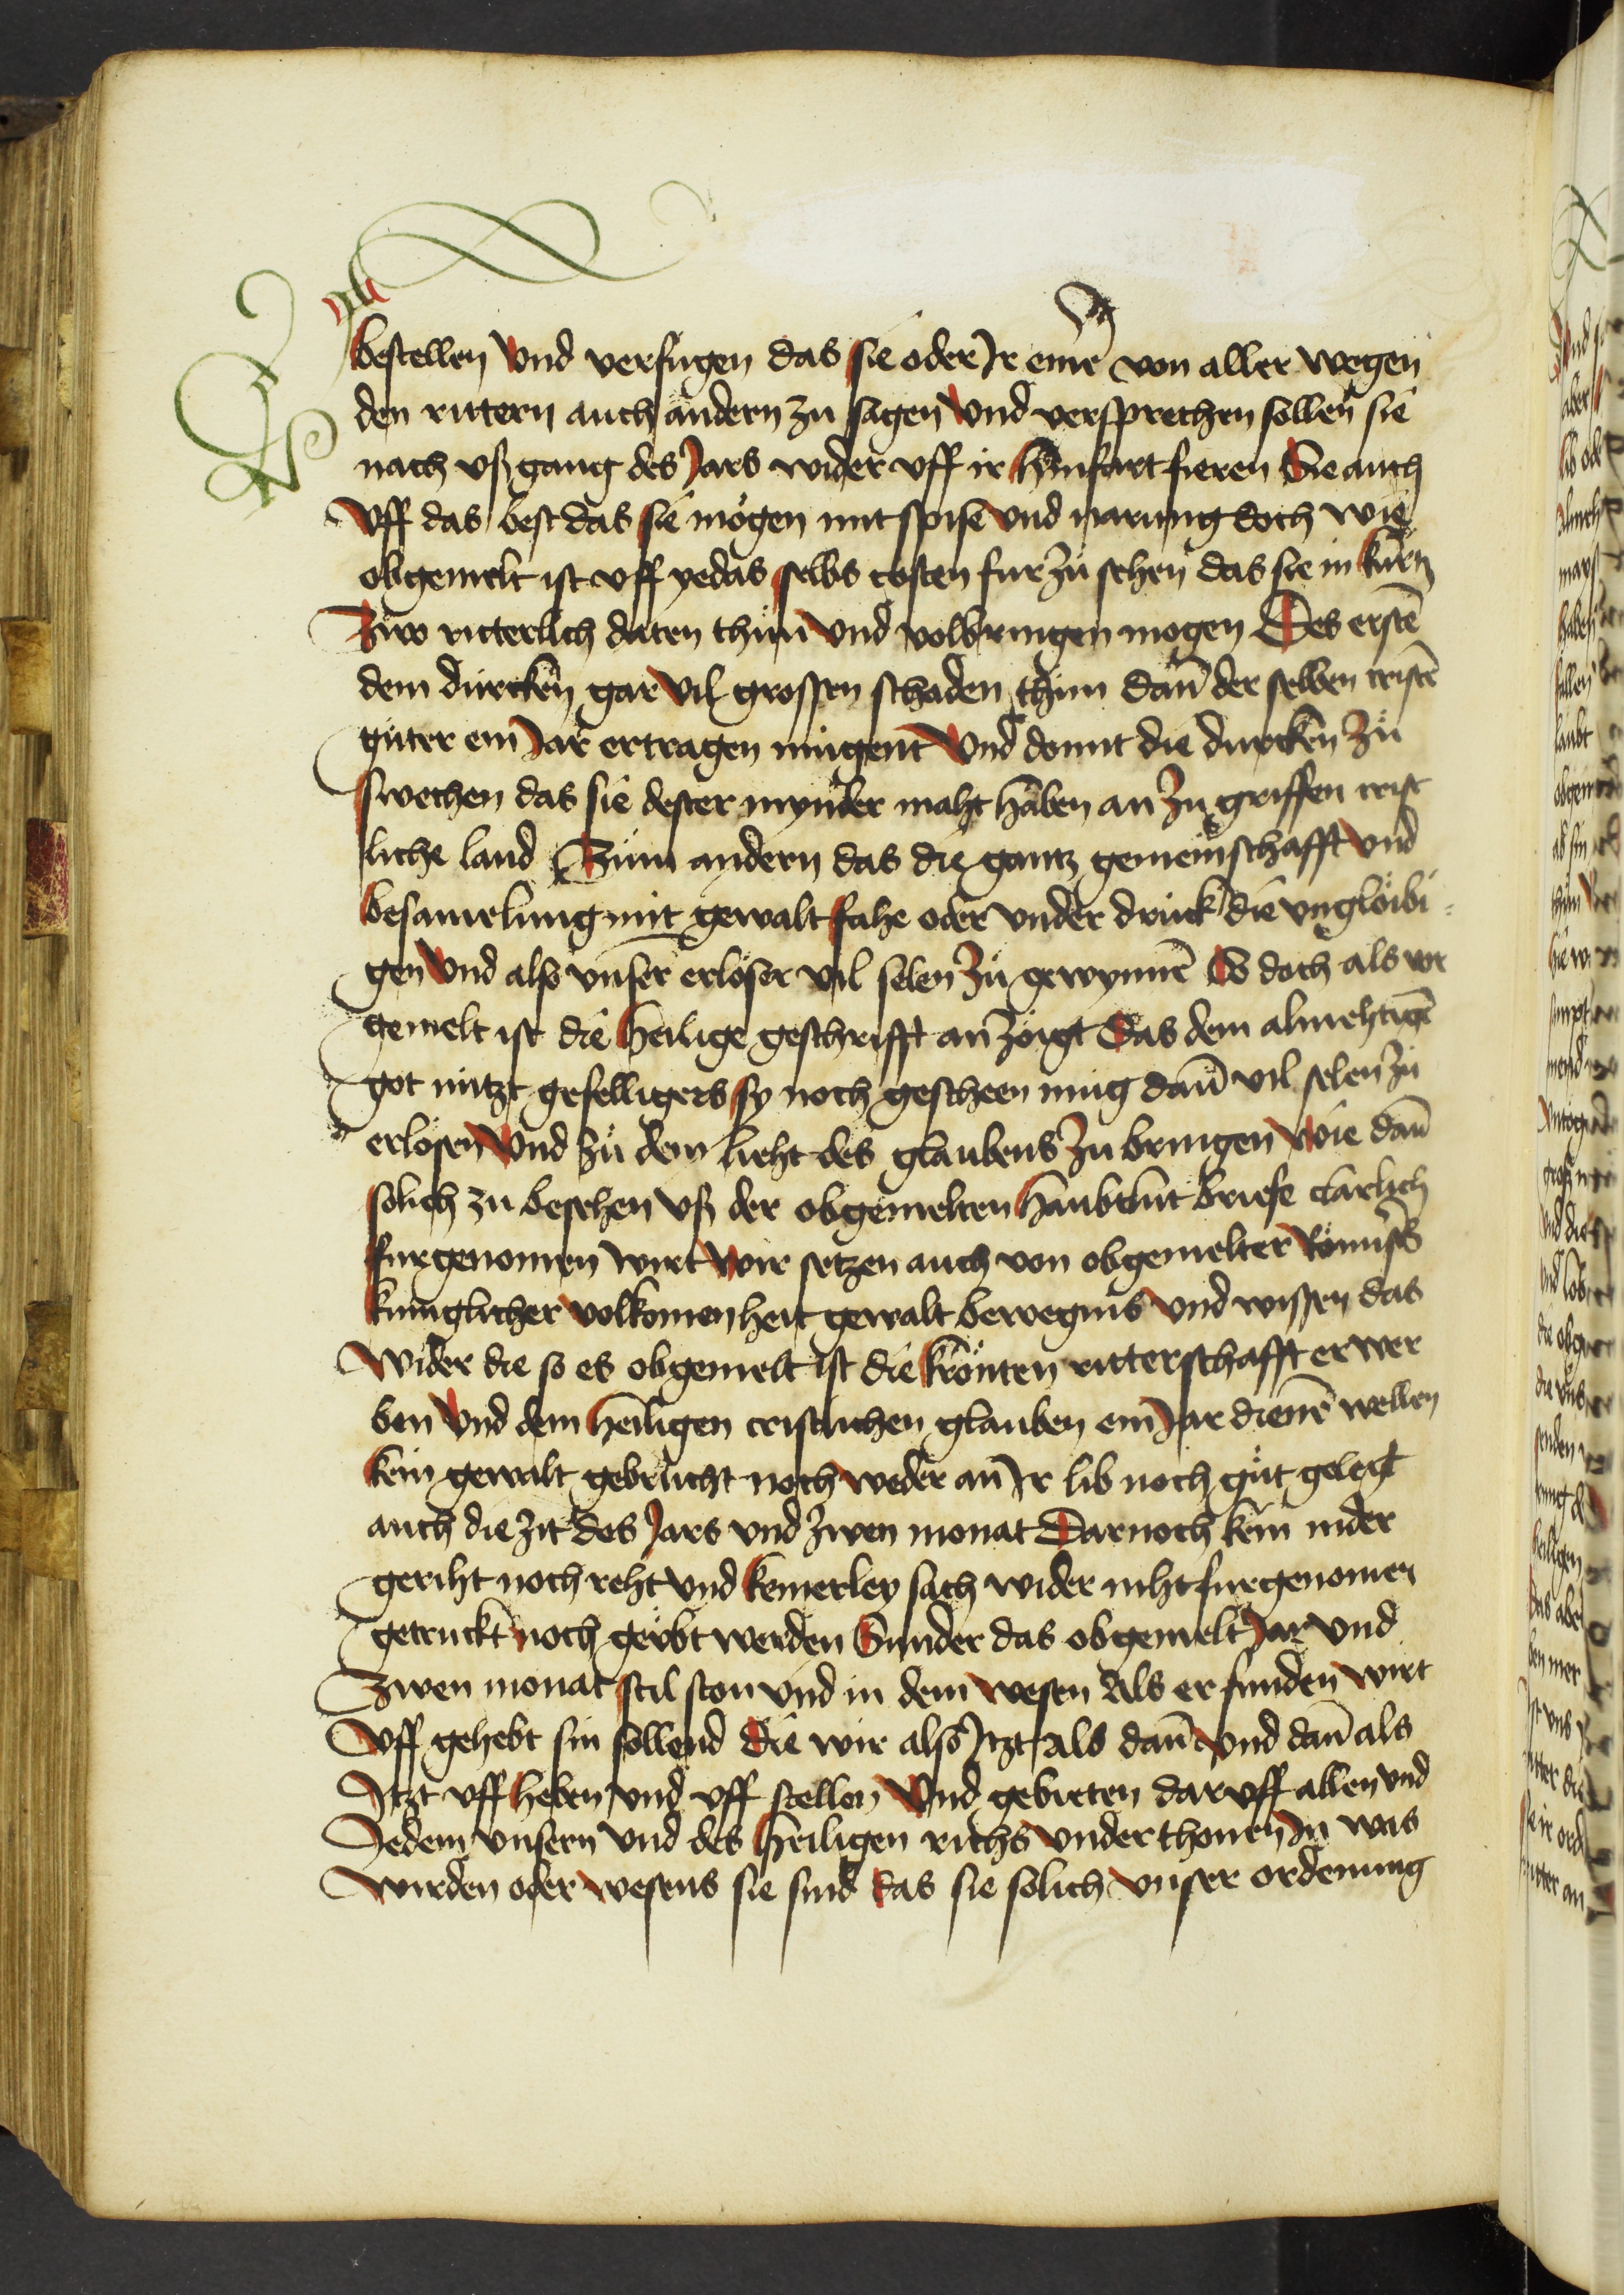 bestellen vnd verfugen das sie oder Jr einr̄ von aller wegen
den rittern auch andern zu sagen vnd versprechen sollen sie
nach vßgang des Jars wider vff ir hinfart fieren Sie auch
vff das best das sie mögen mit spise vnd narung doch wie
obgemelt ist vff yedas selbs costen fur zů sehen das sie in kurtz
Zwo ritterlich daten thůn vnd volbringen mogen Des erstē
dem dürcken gar vil grossen schaden thůn dan̄ der selben cristē
gůter ein Jar ertragen mugent vnd domit die dürcken zů
swechen das sie dester mynder maht haben an zu griffen crist
liche land Zům andern das die gantz gemeinschafft vnd
besamelung mit gewalt fahe oder vnder druck die vnglöibi
gen vnd also vnser erlöser vil selen zů gewynnē So doch als vor
gemelt ist die heilige geschrifft an zöigt Das dem almehtigē
got nützt gefelligers sy noch gescheen mug dan̄ vil selen zů
erlösen vnd zů dem lieht des glaubens zu bringen wie dan̄
solich zu besehen vß der obgemelten haubtlüt briefe clarlich
furgenomen wirt wir setzen auch von obgemelter Römisch
kuniglicher volkomenheit gewalt bewegnis vnd wissen das
wider die so es obgemelt ist die krönten ritterschafft erwer
ben vnd dem heiligen cristlichen glauben ein Jar dienē wellen
kein gewalt gebrucht noch weder an Jr lib noch gůt gelegt
auch die zit des Jars vnd zwen monat Darnoch kein nider
geriht noch reht vnd keinerley sach wider niht furgenomen
getruckt noch geübt werden Sunder das obgemelt Jar vnd
Zwen monat stil ston vnd in dem wesen Als er funden wirt
vff gehebt sin sollend Die wir also Jtzt als dan̄ vnd dan̄ als
Jtzt vff heben vnd vff stellen vnd gebieten daruff allen vnd
Jedem vnsern vnd des heiligen richs vnderthonen Jn was
wirden oder wesens sie sind das sie solich vnser ordenung